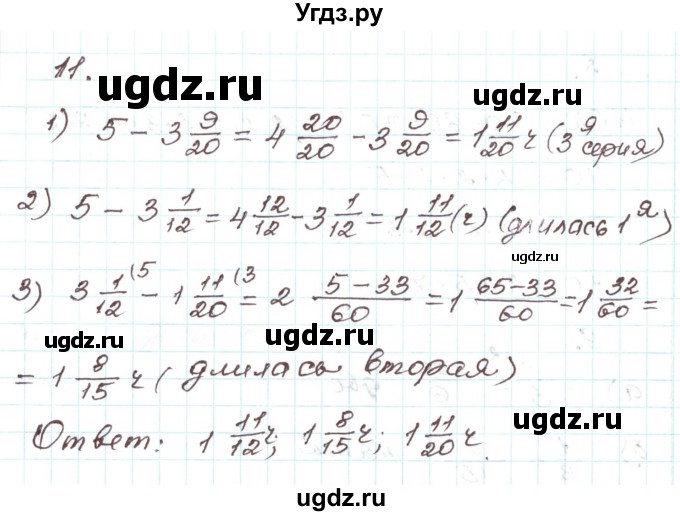 Угдз.ру
11.
ugdz.ru
1) 5 − 3 9/20 = 4 20/20 − 3 9/20 = 1 11/20 ч (3я серия)
2) 5 − 3 1/12 = 4 12/12 − 3 1/12 = 1 11/12 (ч) (длилась 1я)
ugdz.ru
3) 3 1/12 (5 − 1 11/20 (3 = 2 5−33/60 = 1 65−33/60 = 1 32/60 =
ugdz.ru
ugdz.ru
= 1 8/15 ч (длилась вторая)
Ответ: 1 11/12 ч; 1 8/15 ч; 1 11/20 ч.
ugdz.ru
ugdz.ru
ugdz.ru